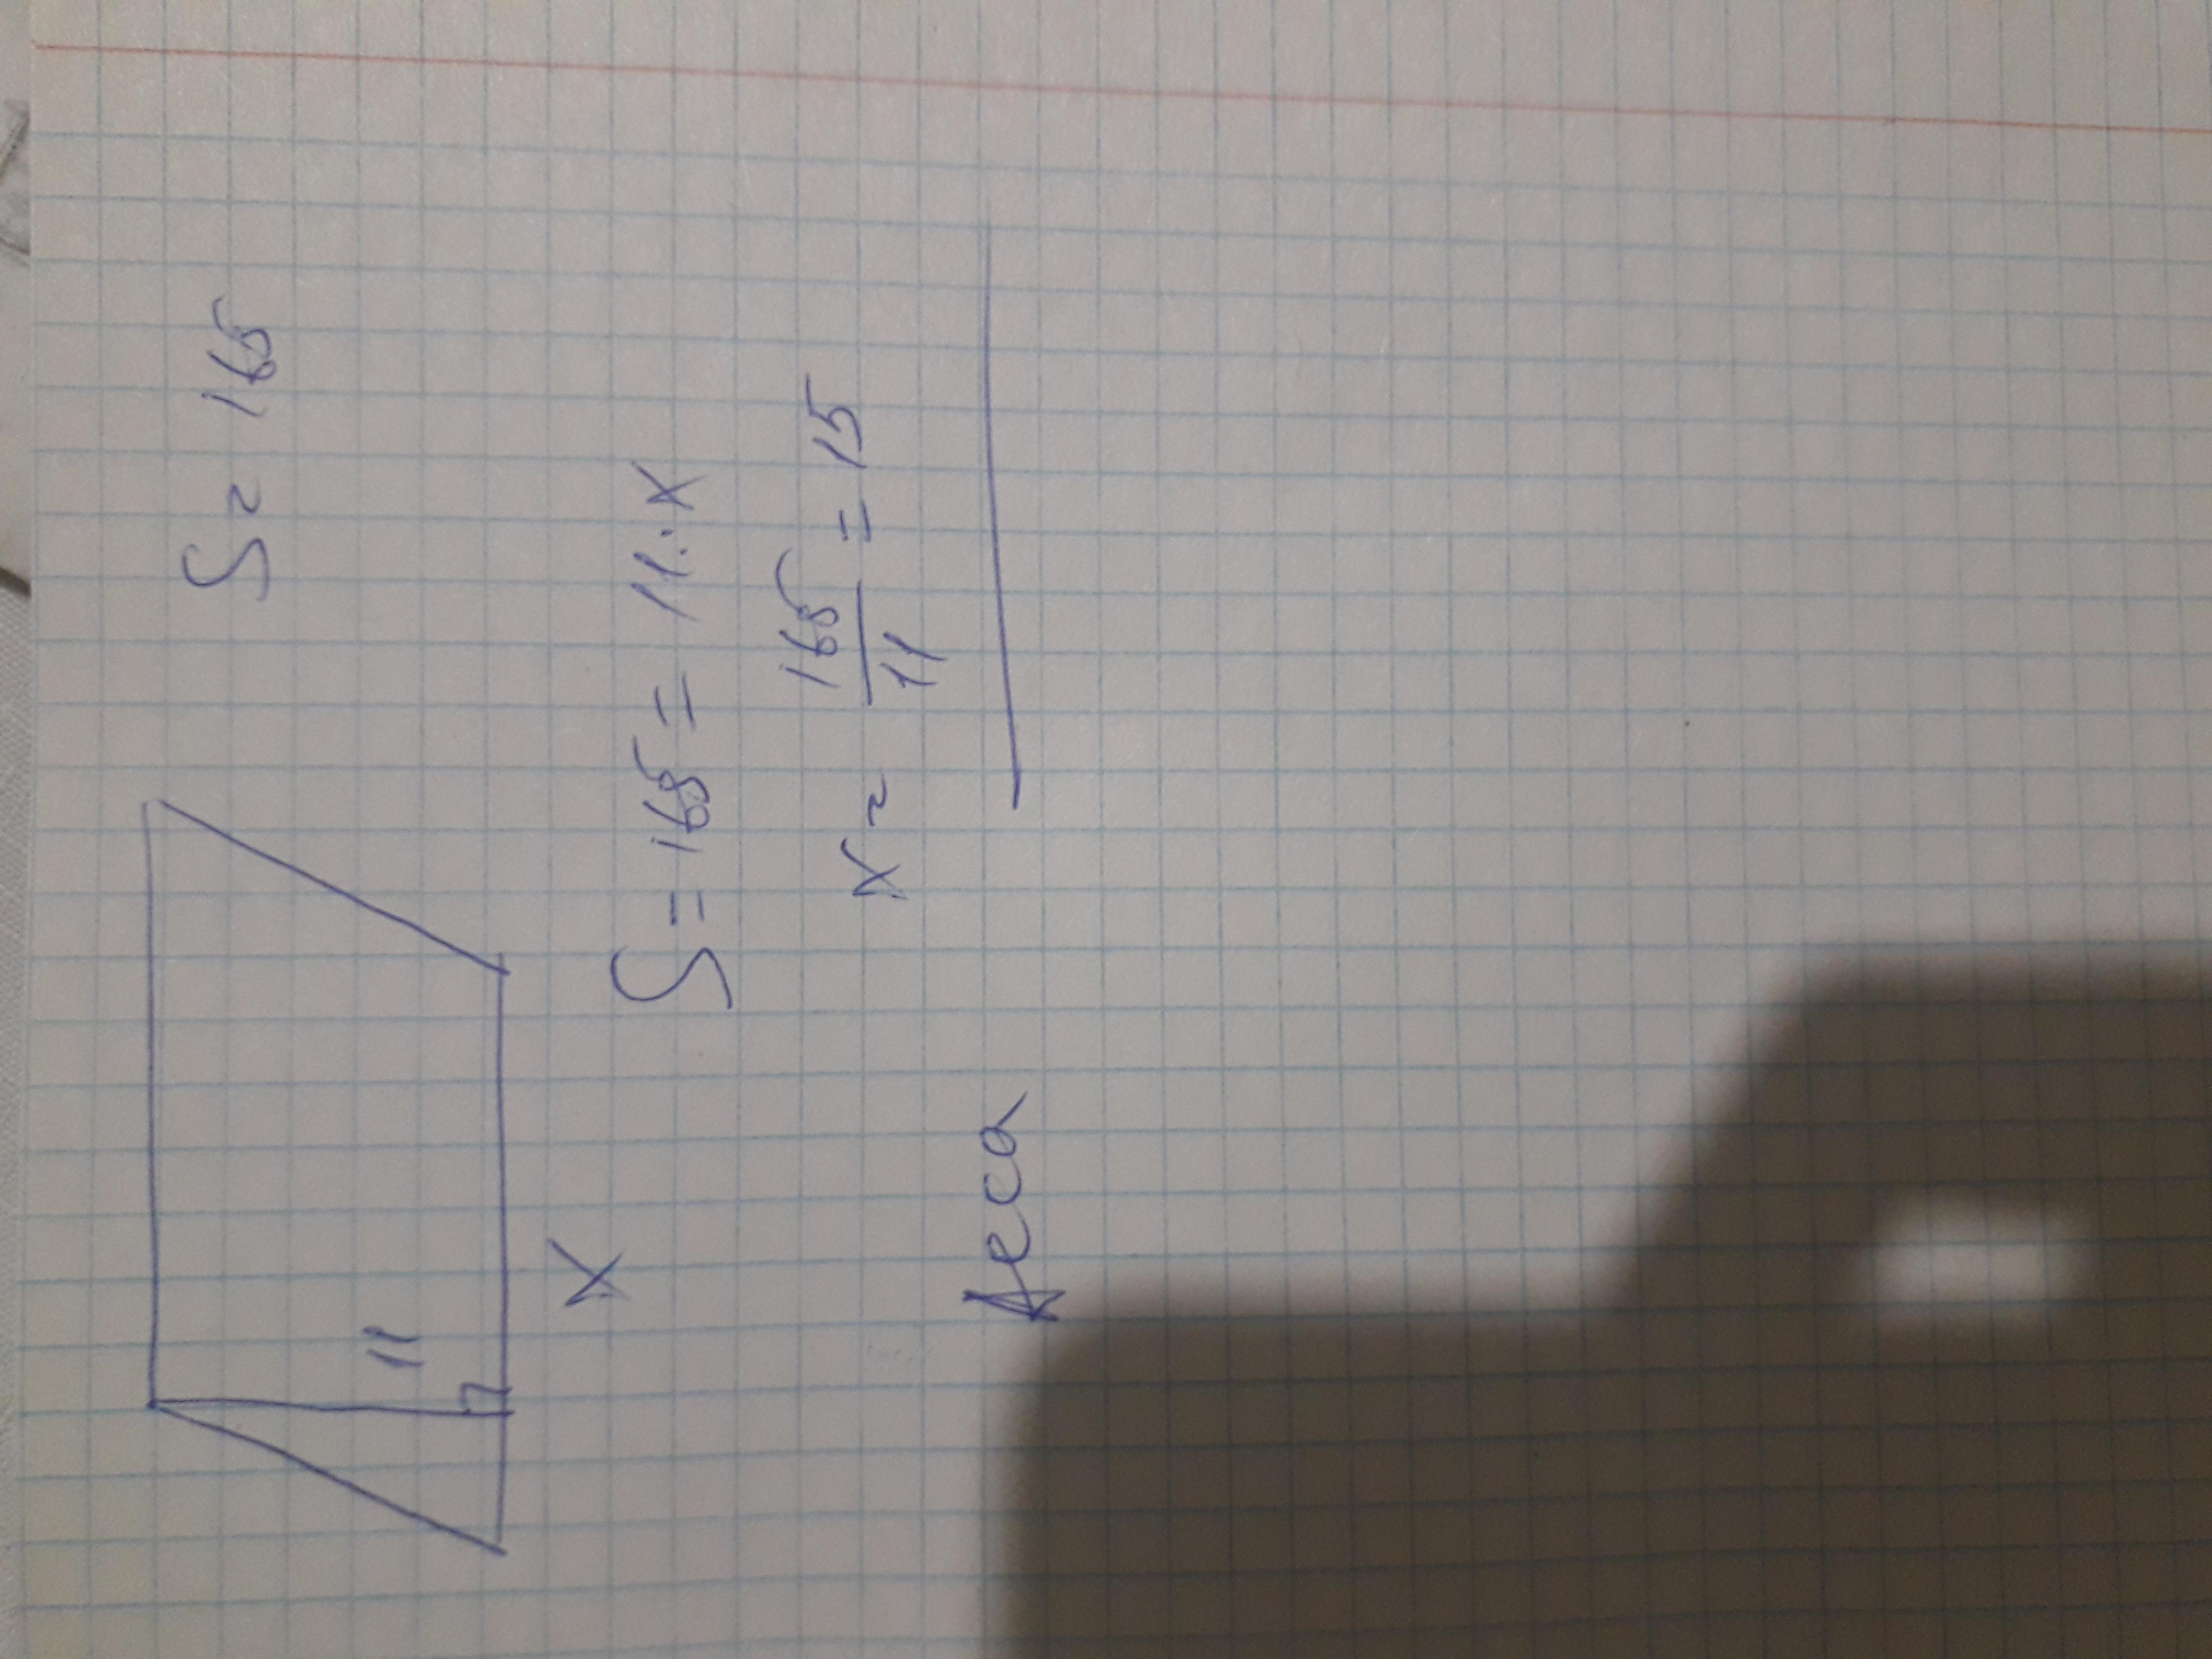 S = 165
11
X
S = 165 = 11 · X
X = 165/11 = 15
Леса